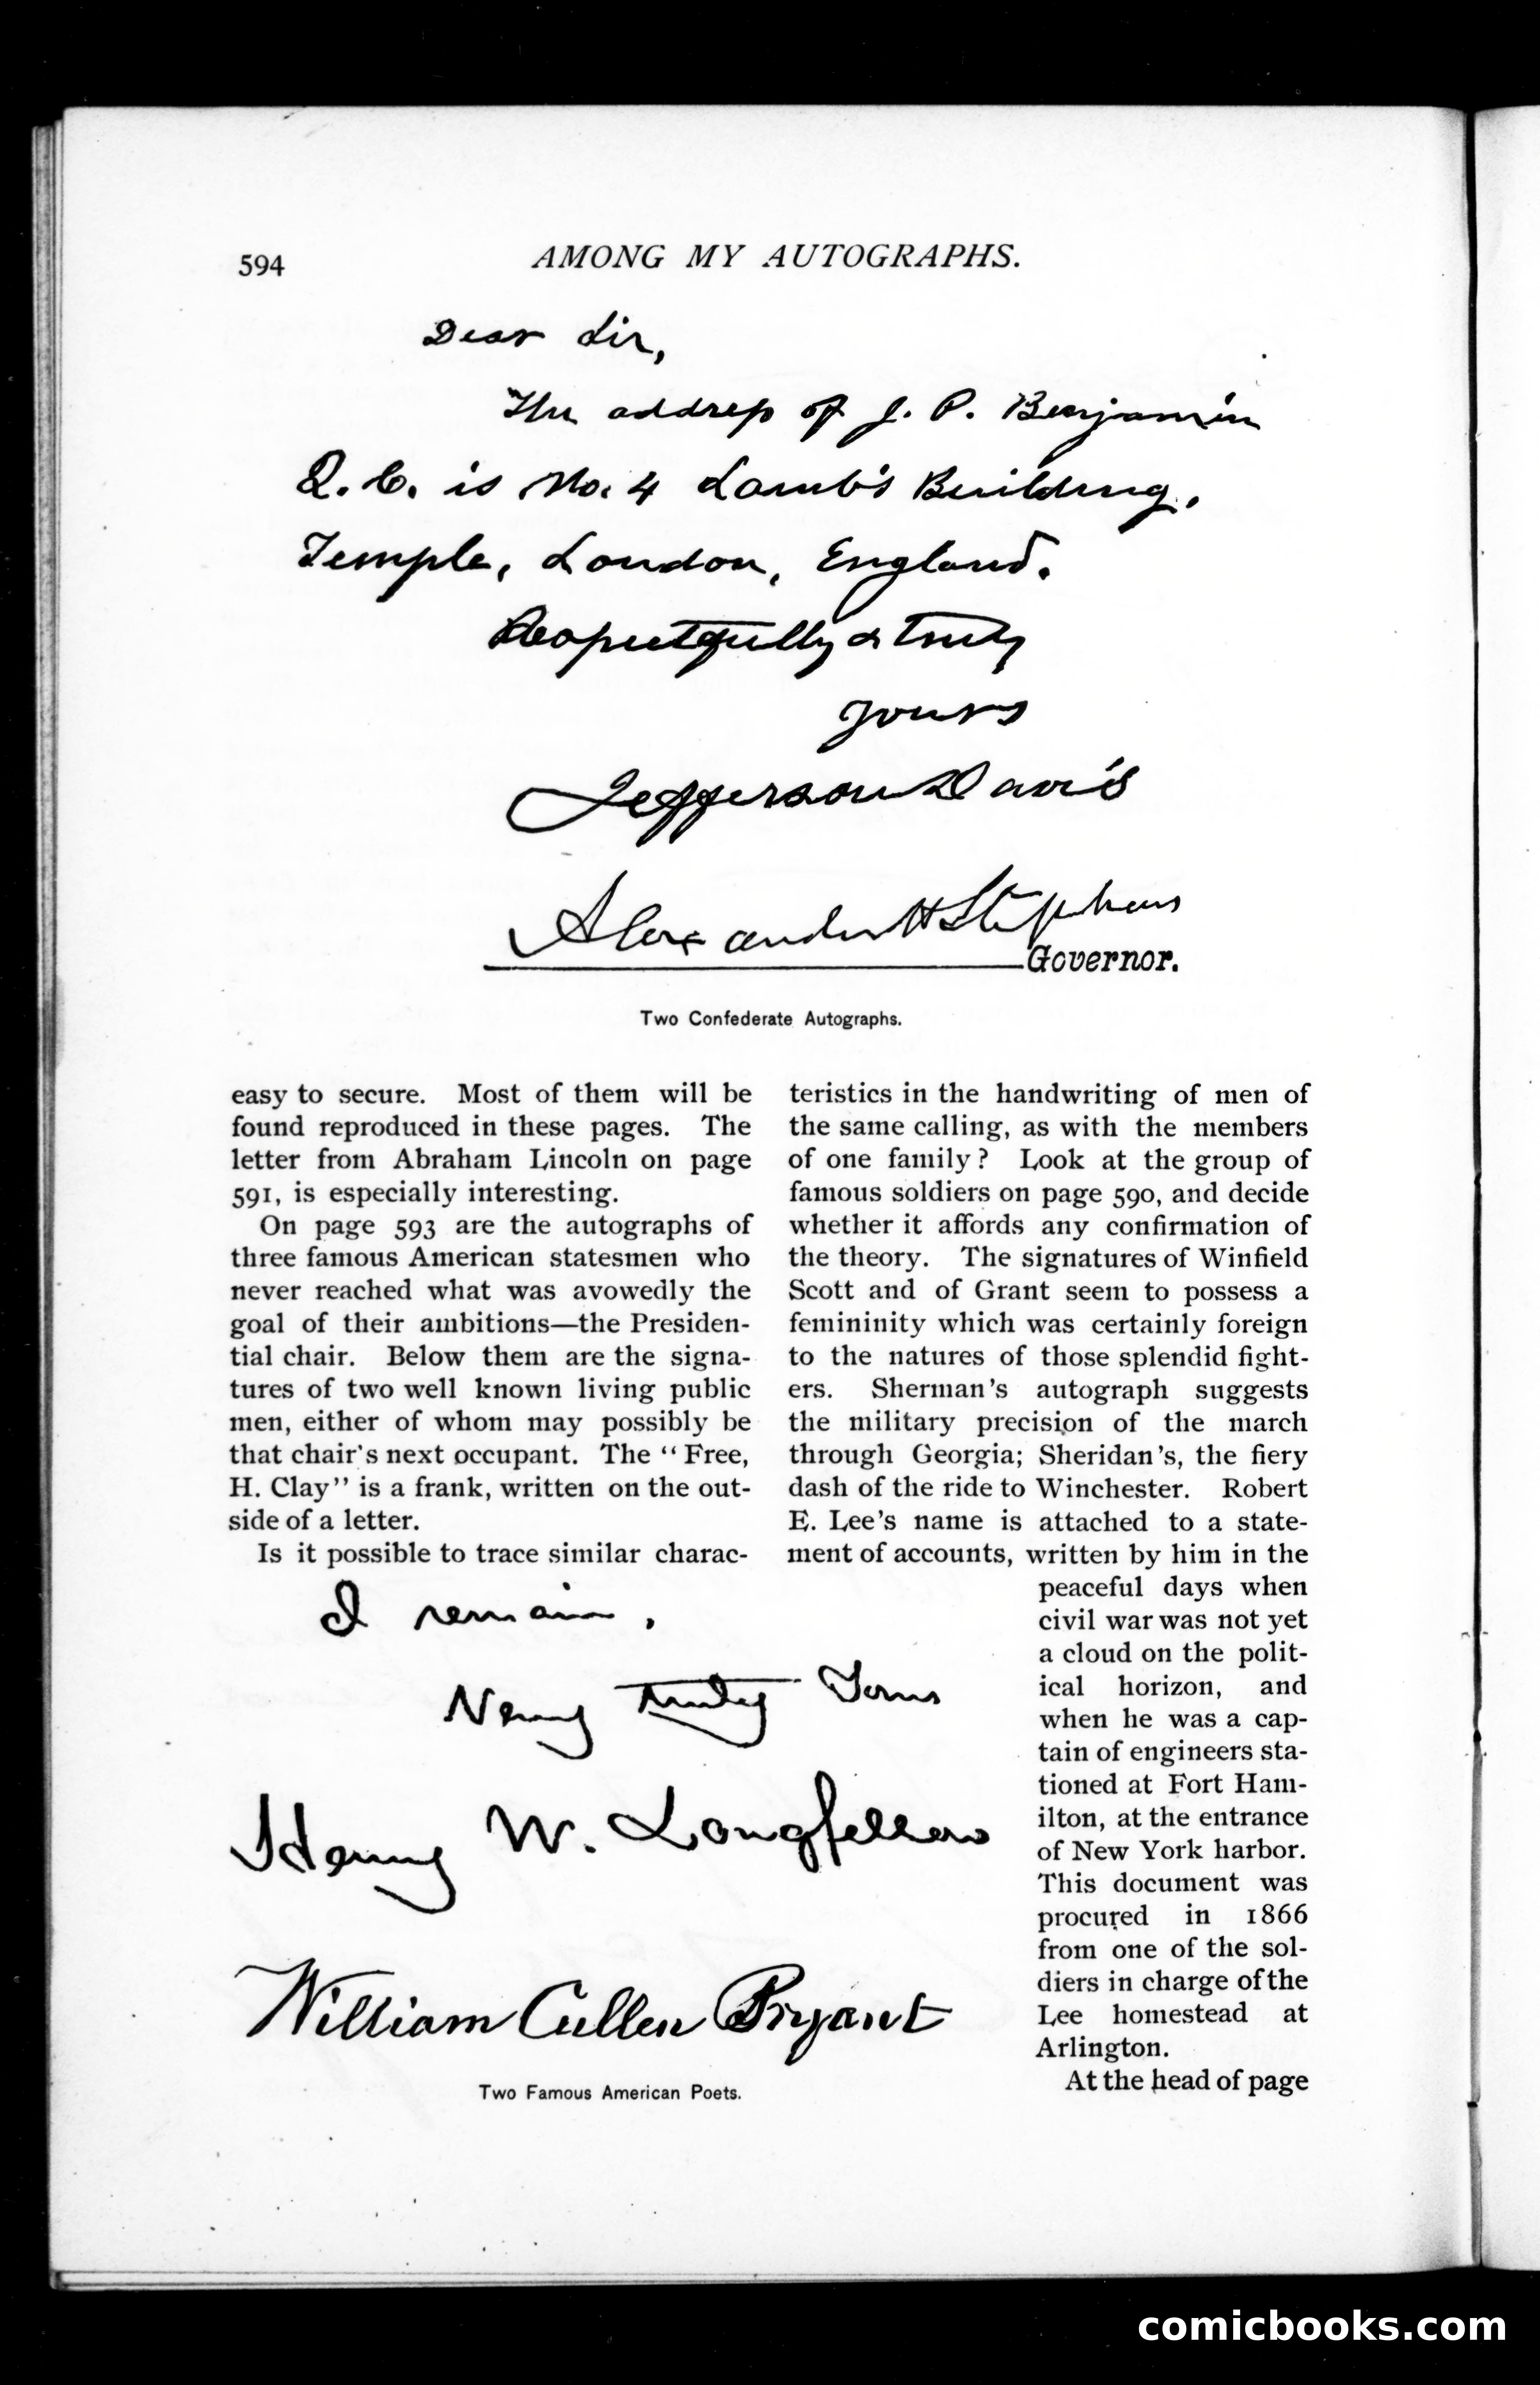 594
AMONG MY AUTOGRAPHS.
Dear Sir,
The address of J. P. Benjamin
Q. C. is No. 4 Lamb's Building,
Temple, London, England.
Respectfully & truly
yours
Jefferson Davis
Alexander H Stephens
Governor.
Two Confederate Autographs.
easy to secure. Most of them will be
found reproduced in these pages. The
letter from Abraham Lincoln on page
591, is especially interesting.
On page 593 are the autographs of
three famous American statesmen who
never reached what was avowedly the
goal of their ambitions—the Presiden-
tial chair. Below them are the signa-
tures of two well known living public
men, either of whom may possibly be
that chair's next occupant. The “Free,
H. Clay” is a frank, written on the out-
side of a letter.
Is it possible to trace similar charac-
teristics in the handwriting of men of
the same calling, as with the members
of one family? Look at the group of
famous soldiers on page 590, and decide
whether it affords any confirmation of
the theory. The signatures of Winfield
Scott and of Grant seem to possess a
femininity which was certainly foreign
to the natures of those splendid fight-
ers. Sherman's autograph suggests
the military precision of the march
through Georgia; Sheridan's, the fiery
dash of the ride to Winchester. Robert
E. Lee's name is attached to a state-
ment of accounts, written by him in the
peaceful days when
civil war was not yet
a cloud on the polit-
ical horizon, and
when he was a cap-
tain of engineers sta-
tioned at Fort Ham-
ilton, at the entrance
of New York harbor.
This document was
procured in 1866
from one of the sol-
diers in charge of the
Lee homestead at
Arlington.
At the head of page
I remain,
Very truly Yours
Henry W. Longfellow
William Cullen Bryant
Two Famous American Poets.
comicbooks.com